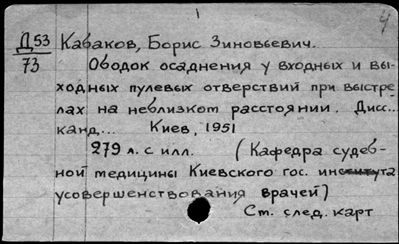 1
4
Д53 Кабаков, Борис Зиновьевич.
73 Ободок осаднения у входных и вы-
ходных пулевых отверстий при выстре
лах на неблизком расстоянии. Дисс...
канд... Киев, 1951
279 л. с илл. (Кафедра судеб-
ной медицины Киевского гос. института
усовершенствования врачей)
Ст. след. карт